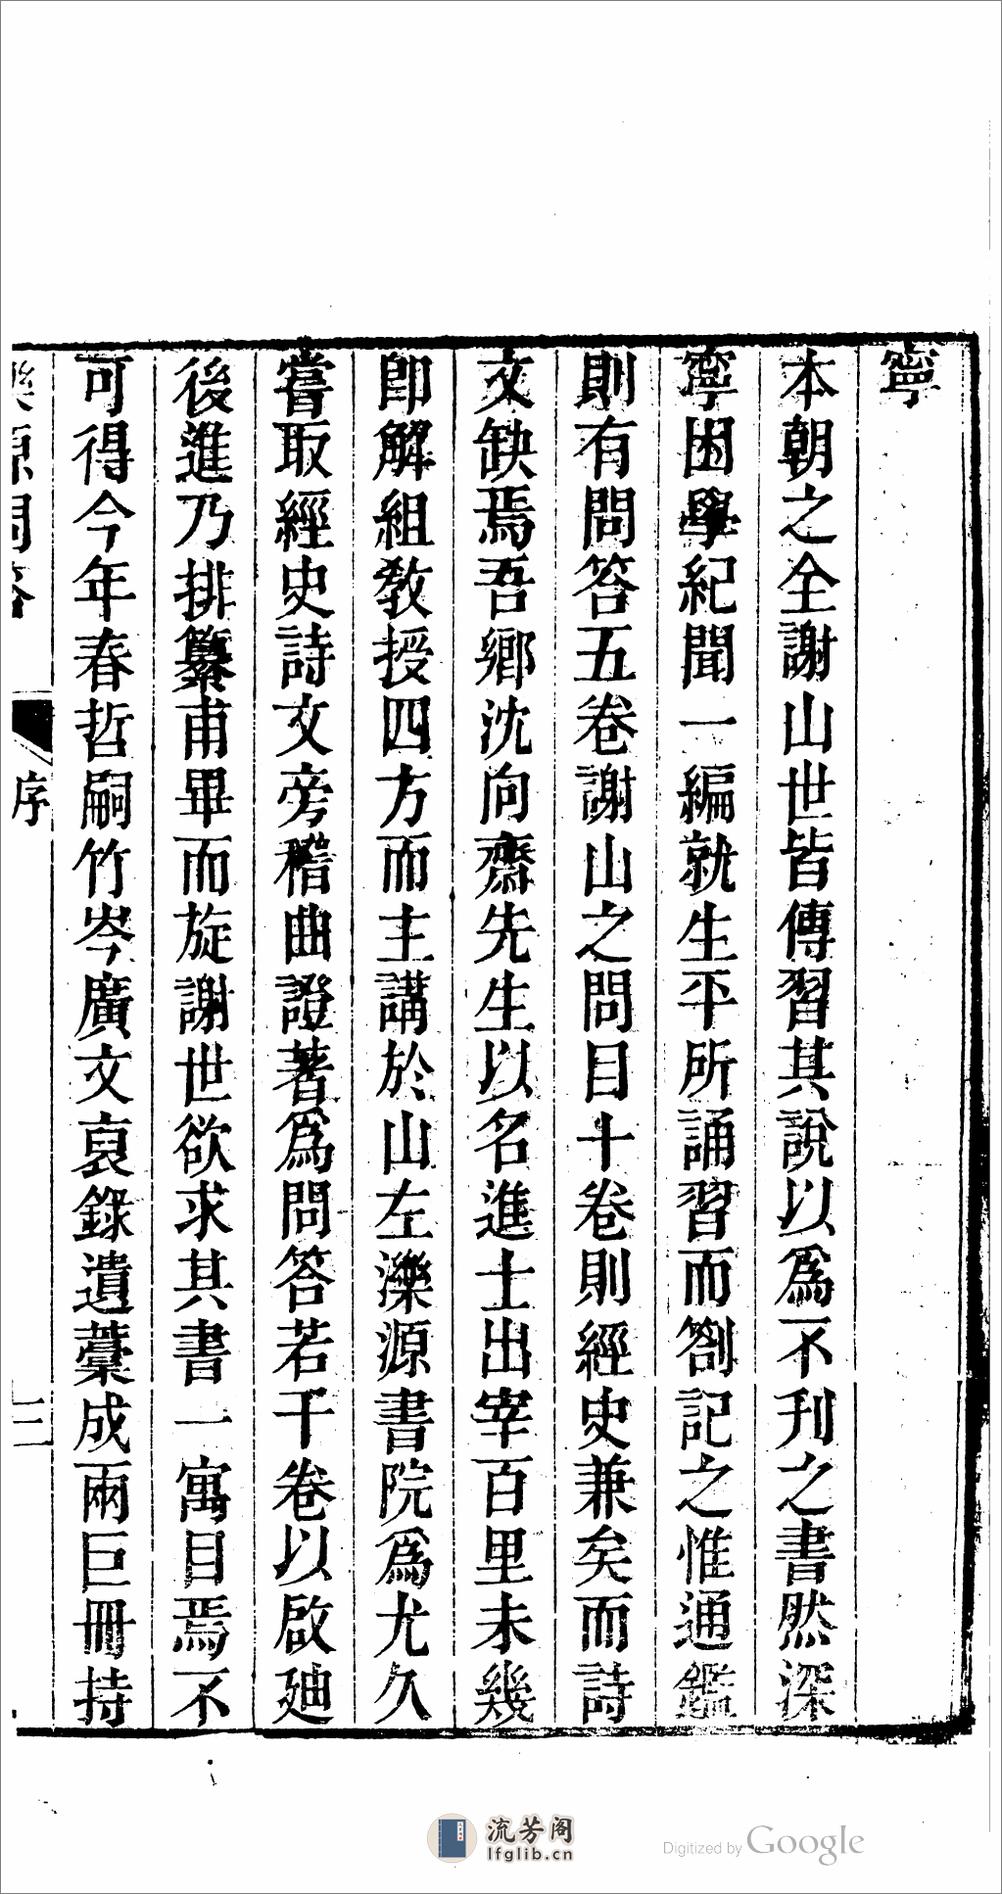 寧
本朝之全謝山世皆傳習其說以爲不刋之書然深
寧困學紀聞一編就生平所誦習而劄記之惟通鑑
則有問答五卷謝山之問目十卷則經史兼矣而詩
文缺焉吾鄉沈向齋先生以名進士出宰百里未幾
即解組敎授四方而主講於山左濼源書院爲尤久
嘗取經史詩文旁稽曲證著爲問答若干卷以啟廸
後進乃排纂甫畢而旋謝世欲求其書一寓目焉不
可得今年春哲嗣竹岑廣文裒錄遺藁成兩巨冊持
序
三
流芳阁
lfglib.cn
Digitized by Google